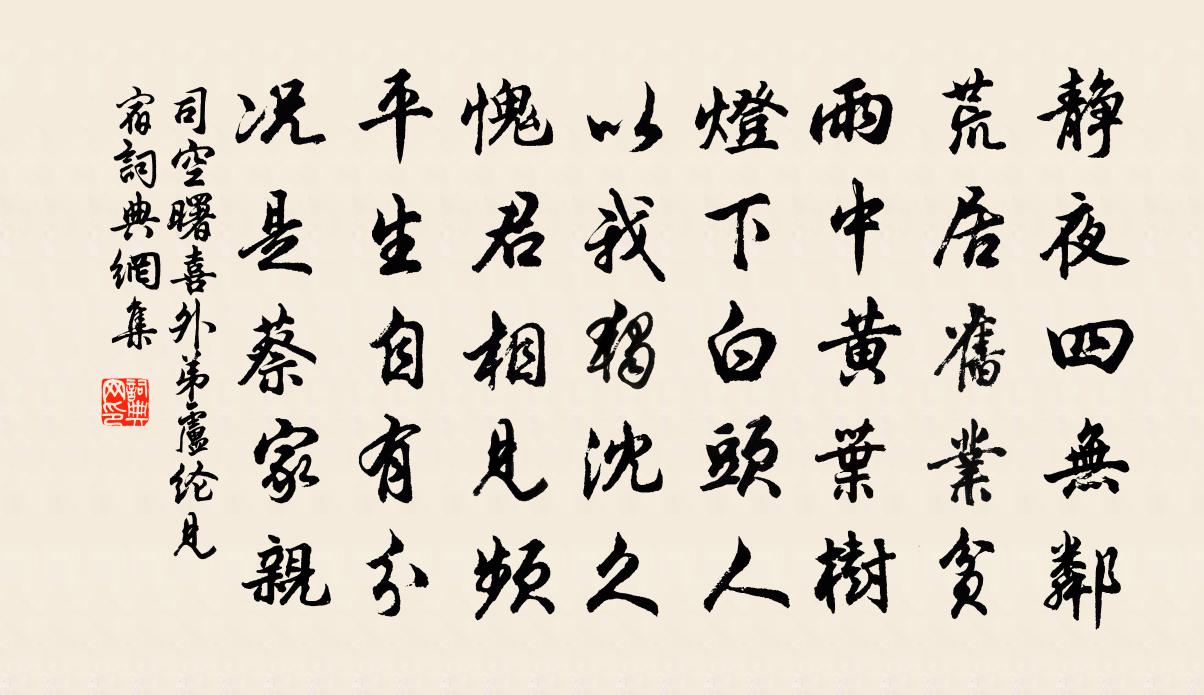 静夜四無鄰
荒居舊業貧
雨中黄葉樹
燈下白頭人
以我獨沈久
愧君相見頻
平生自有分
况是蔡家親
司空曙喜外弟盧纶見
宿詞典網集
詞典网印